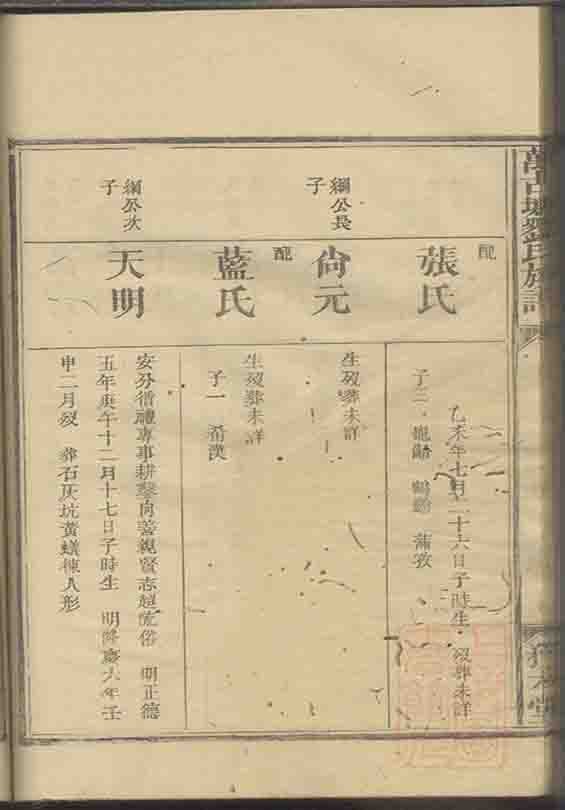 劉氏族譜
配
張氏
乙未年七月二十六日子時生 歿葬未詳
子三
綱公長
子
尚元
生歿葬未詳
配
藍氏
生歿葬未詳
子一 希漢
綱公次
子
天明
安分循禮專事耕鑿向善親賢志趨流俗 明正德
五年庚午十二月十七日子時生 明隆慶六年壬
申二月歿 葬石灰坑黃蟻棟人形